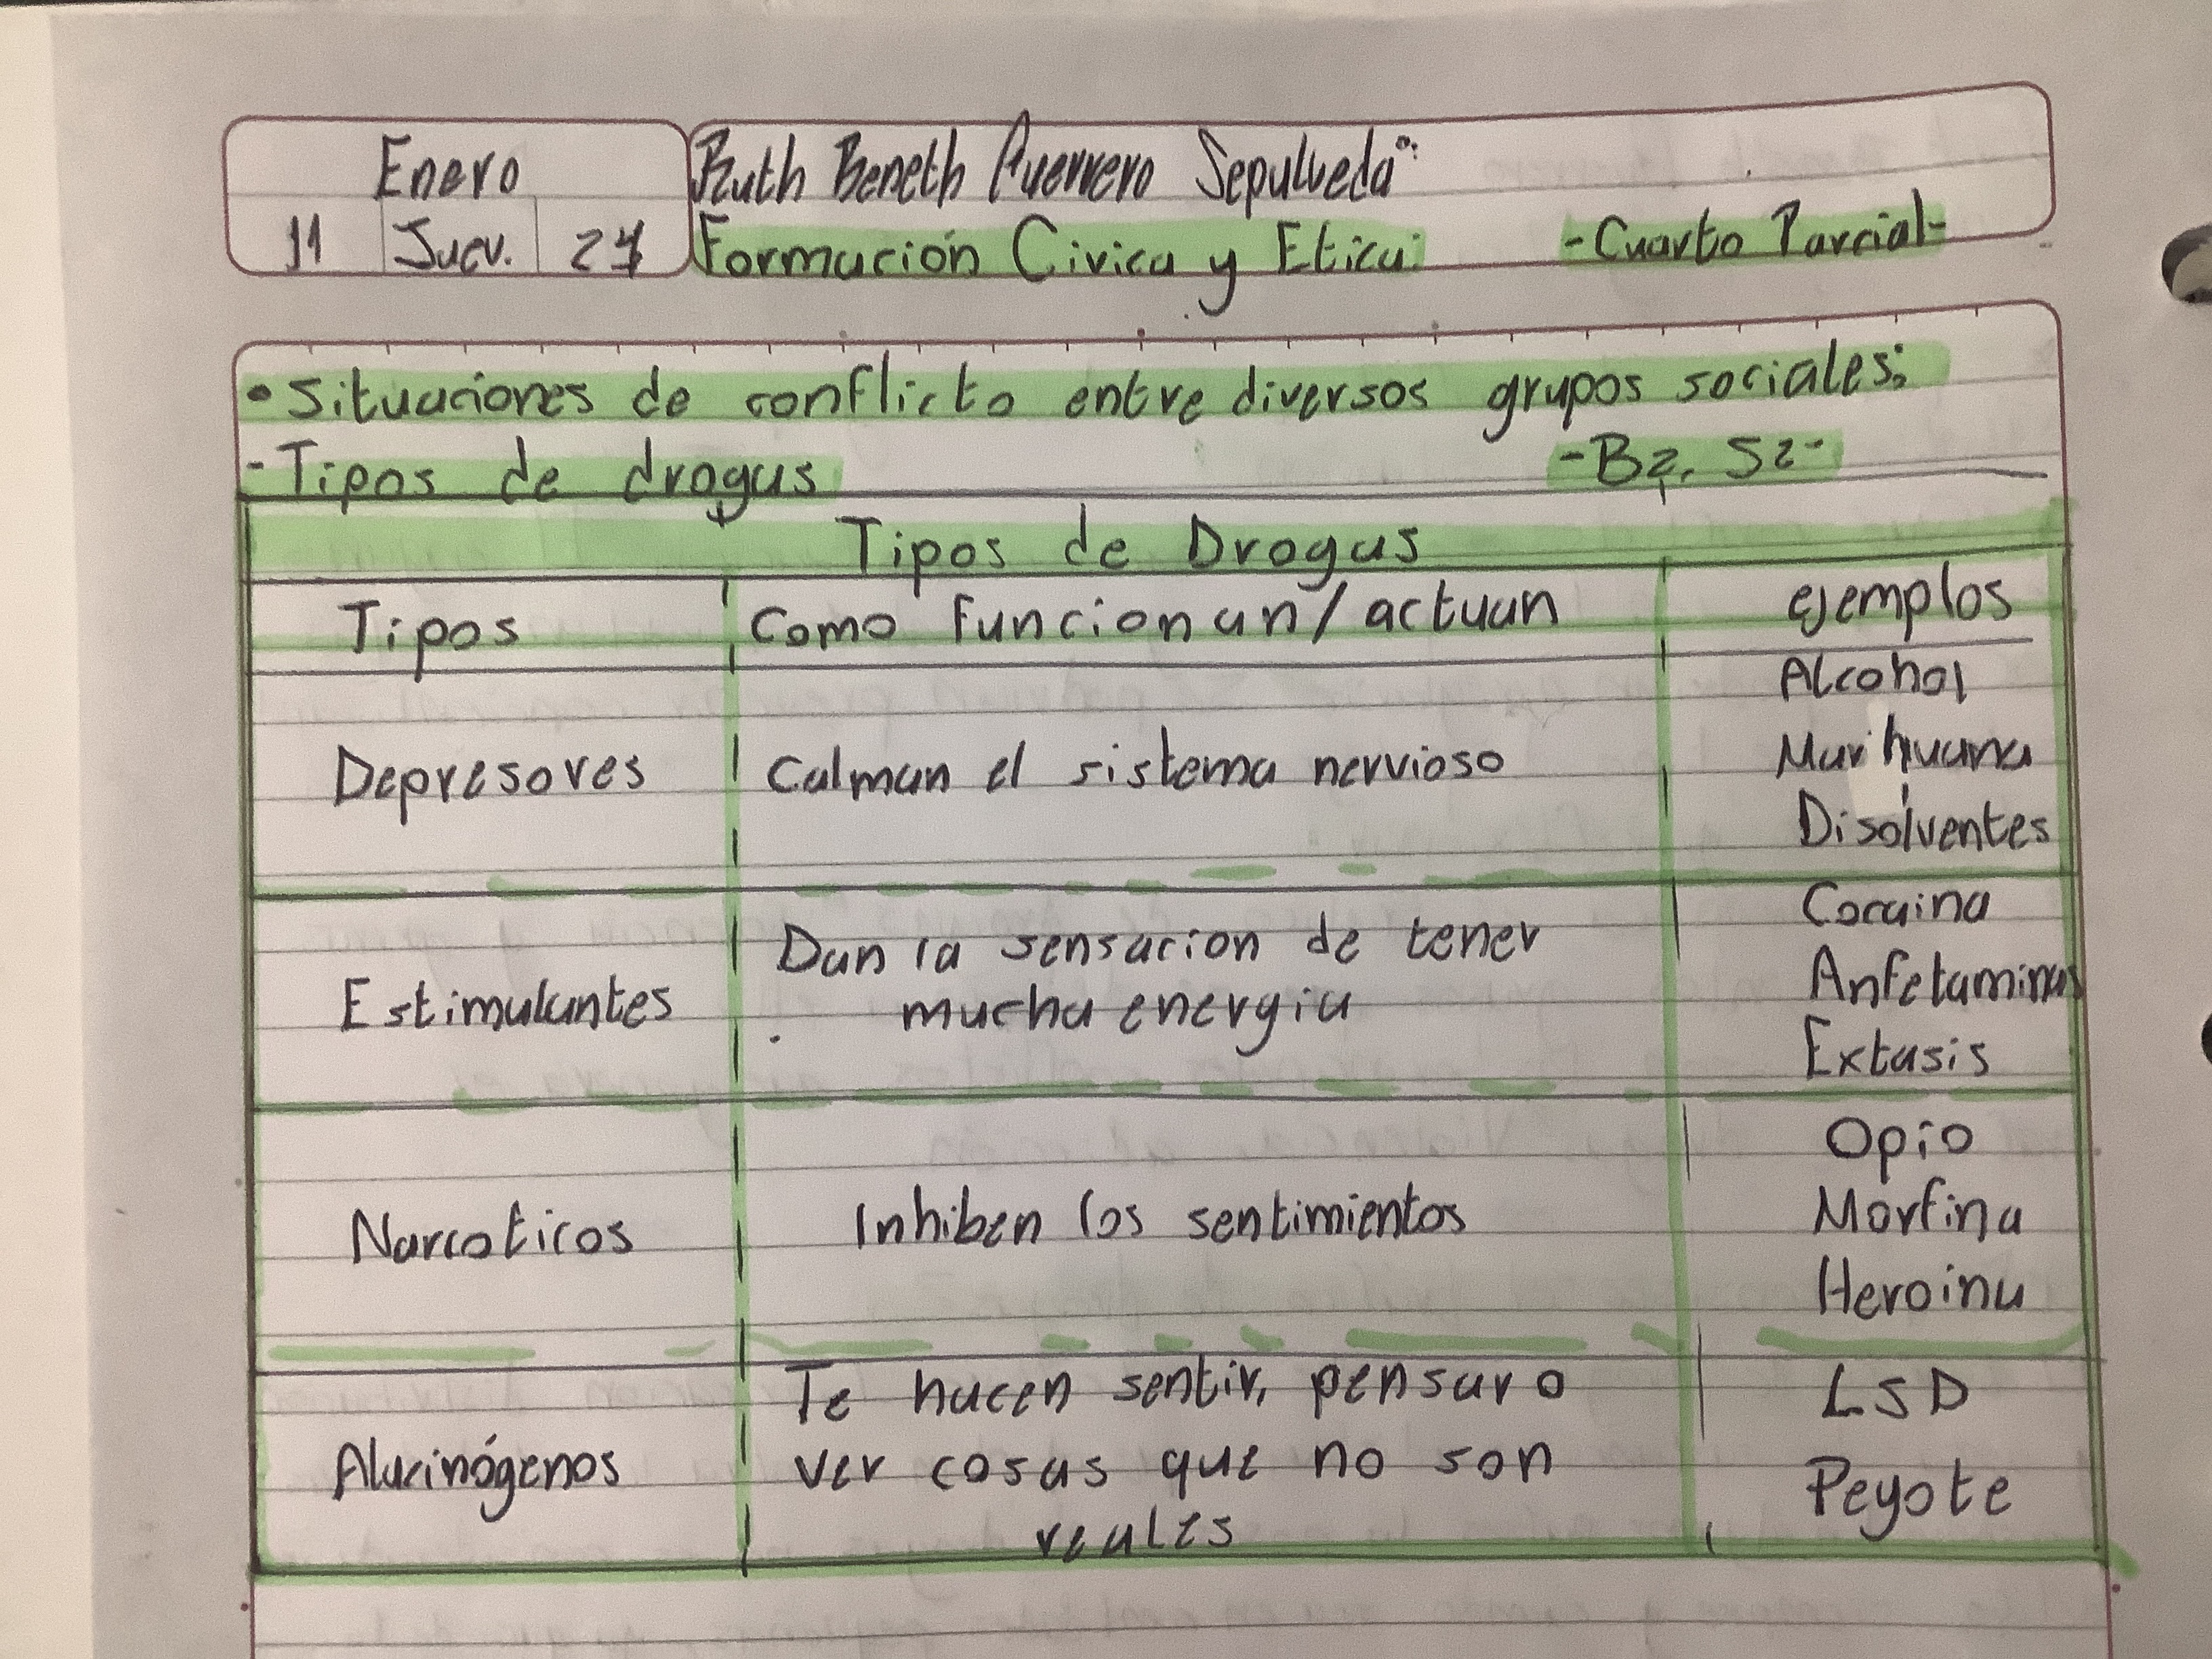 Enero
11 Juev. 24
Ruth Beneth Guerrero Sepulveda:
Formación Civica y Etica: -Cuarto Parcial-
• Situaciones de conflicto entre diversos grupos sociales:
- Tipos de drogas -B2, S2-
Tipos de Drogas
Tipos Como funcionan/actuan ejemplos
Depresores
Calman el sistema nervioso
Alcohol
Marihuana
Disolventes
Estimulantes
Dan la sensacion de tener
mucha energia
Cocaina
Anfetaminas
Extasis
Narcoticos
Inhiben los sentimientos
Opio
Morfina
Heroina
Alucinógenos
Te hacen sentir, pensar o
ver cosas que no son
reales
LSD
Peyote